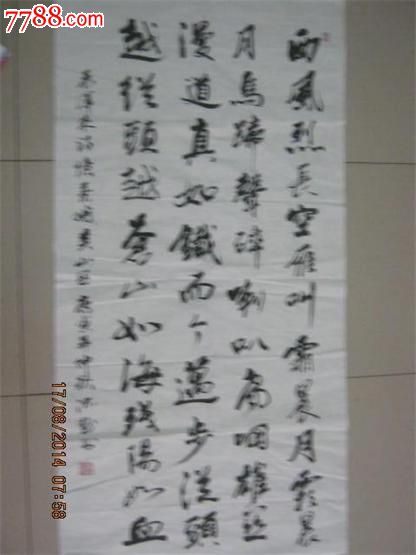 7788.com
西風烈長空雁叫霜晨月霜晨
月馬蹄聲碎喇叭聲咽雄關
漫道真如鐵而今邁步從頭
越從頭越蒼山如海殘陽如血
毛澤東詞憶秦娥婁山關庚寅年中秋
17/08/2014 07:58